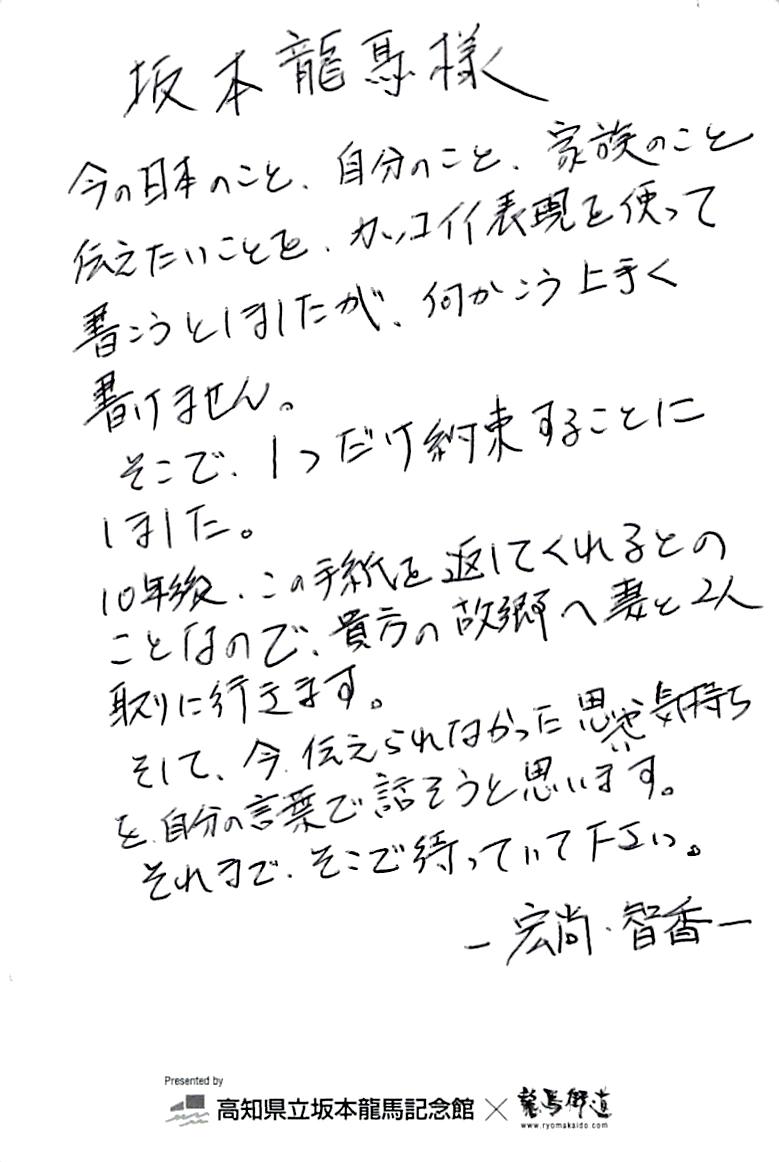 坂本龍馬様
今の日本のこと、自分のこと、家族のこと
伝えたいことを、カッコイイ表現を使って
書こうとしましたが、何かこう上手く
書けません。
そこで、1つだけ約束することに
しました。
10年後、この手紙を返してくれるとの
ことなので、貴方の故郷へ妻と2人
取りに行きます。
そして、今、伝えられなかった思いや気持ち
を、自分の言葉で話そうと思います。
それまで、そこで待っていて下さい。
－宏尚・智香－
Presented by
高知県立坂本龍馬記念館×龍馬街道
www.ryomakaido.com